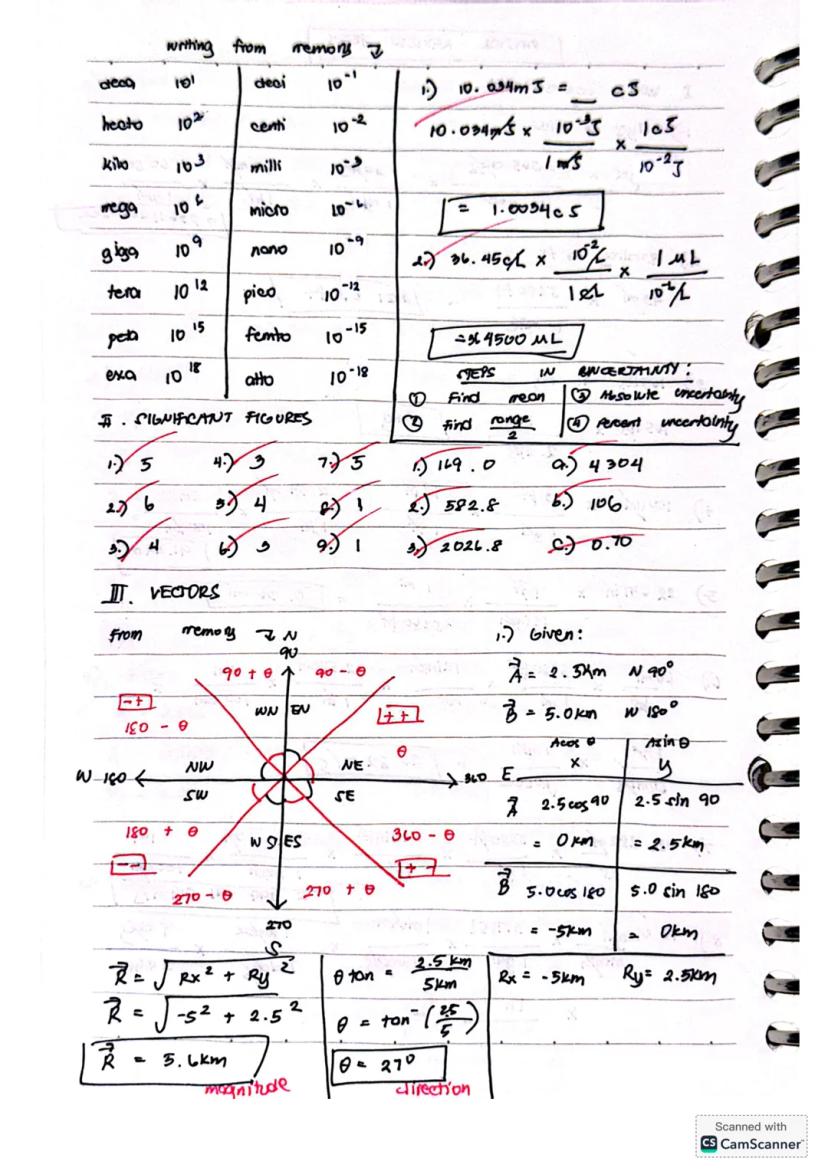 writing from memory ↴
deca 10¹ deci 10⁻¹
hecto 10² centi 10⁻²
kilo 10³ milli 10⁻³
mega 10⁶ micro 10⁻⁶
giga 10⁹ nano 10⁻⁹
tera 10¹² pico 10⁻¹²
peta 10¹⁵ femto 10⁻¹⁵
exa 10¹⁸ atto 10⁻¹⁸
1.) 10.034mJ = __ cJ
10.034mJ × 10⁻³J / 1mJ × 1cJ / 10⁻²J
= 1.0034cJ
2.) 36.45cL × 10⁻²L / 1cL × 1 μL / 10⁻⁶L
=364500 μL
STEPS IN UNCERTAINTY:
① Find mean ③ Absolute uncertainty
② find range/2 ④ Percent uncertainty
II. SIGNIFICANT FIGURES
1.) 5 4.) 3 7.) 5 1.) 169.0 a.) 4304
2.) 6 5.) 4 8.) 1 2.) 582.8 b.) 106
3.) 4 6.) 3 9.) 1 3.) 2026.8 c.) 0.70
III. VECTORS
from memory ↴ N
90
90 + θ 90 - θ
-+
180 - θ
WN EN
++
θ
NW NE
W 180 360 E
SW SE
180 + θ 360 - θ
WS ES
-- +-
270 - θ 270 + θ
270
S
1.) Given:
A = 2.5km N 90°
B = 5.0km W 180°
Acos θ Asin θ
x y
A 2.5cos90 2.5 sin 90
= 0km = 2.5km
B 5.0cos 180 5.0 sin 180
= -5km = 0km
Rx = -5km Ry = 2.5km
R = √Rx² + Ry²
R = √-5² + 2.5²
R = 5.6km
magnitude
θ tan = 2.5 km / 5km
θ = tan⁻ (2.5/5)
θ = 27°
direction
Scanned with
CS CamScanner